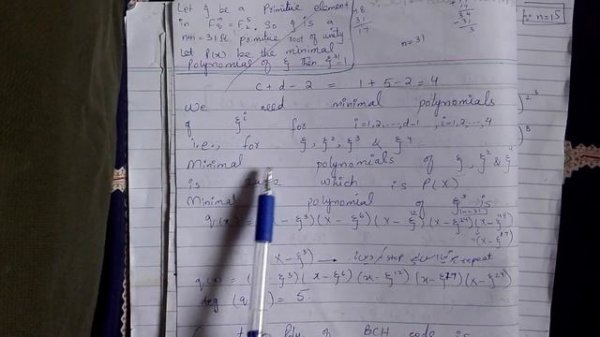 Let ξ be a Primitive element
in F = F. So ξ is a
nm = 31st primitive root of unity
Let P(x) be the minimal
Polynomial of ξ then
31
17
n=31
n=15
c+d-2 = 1+5-2=4
We need minimal polynomials
of ξ^i for i=1,2,...,d-1, i=1,2,...,4
i.e., for ξ, ξ², ξ³ & ξ⁴
Minimal polynomials of ξ, ξ² & ξ⁴
is which is P(X)
Minimal polynomial of ξ³ is
q(x) = - ξ³)(x-ξ⁶)(x-ξ¹²)(x-ξ²⁴)(x-ξ⁴⁸)
(x-ξ¹⁷)
x-ξ³) → repeat
q(x) = ξ³)(x-ξ⁶)(x-ξ¹²)(x-ξ¹⁷)(x-ξ²⁴)
deg (q = 5
Poly of BCH code is